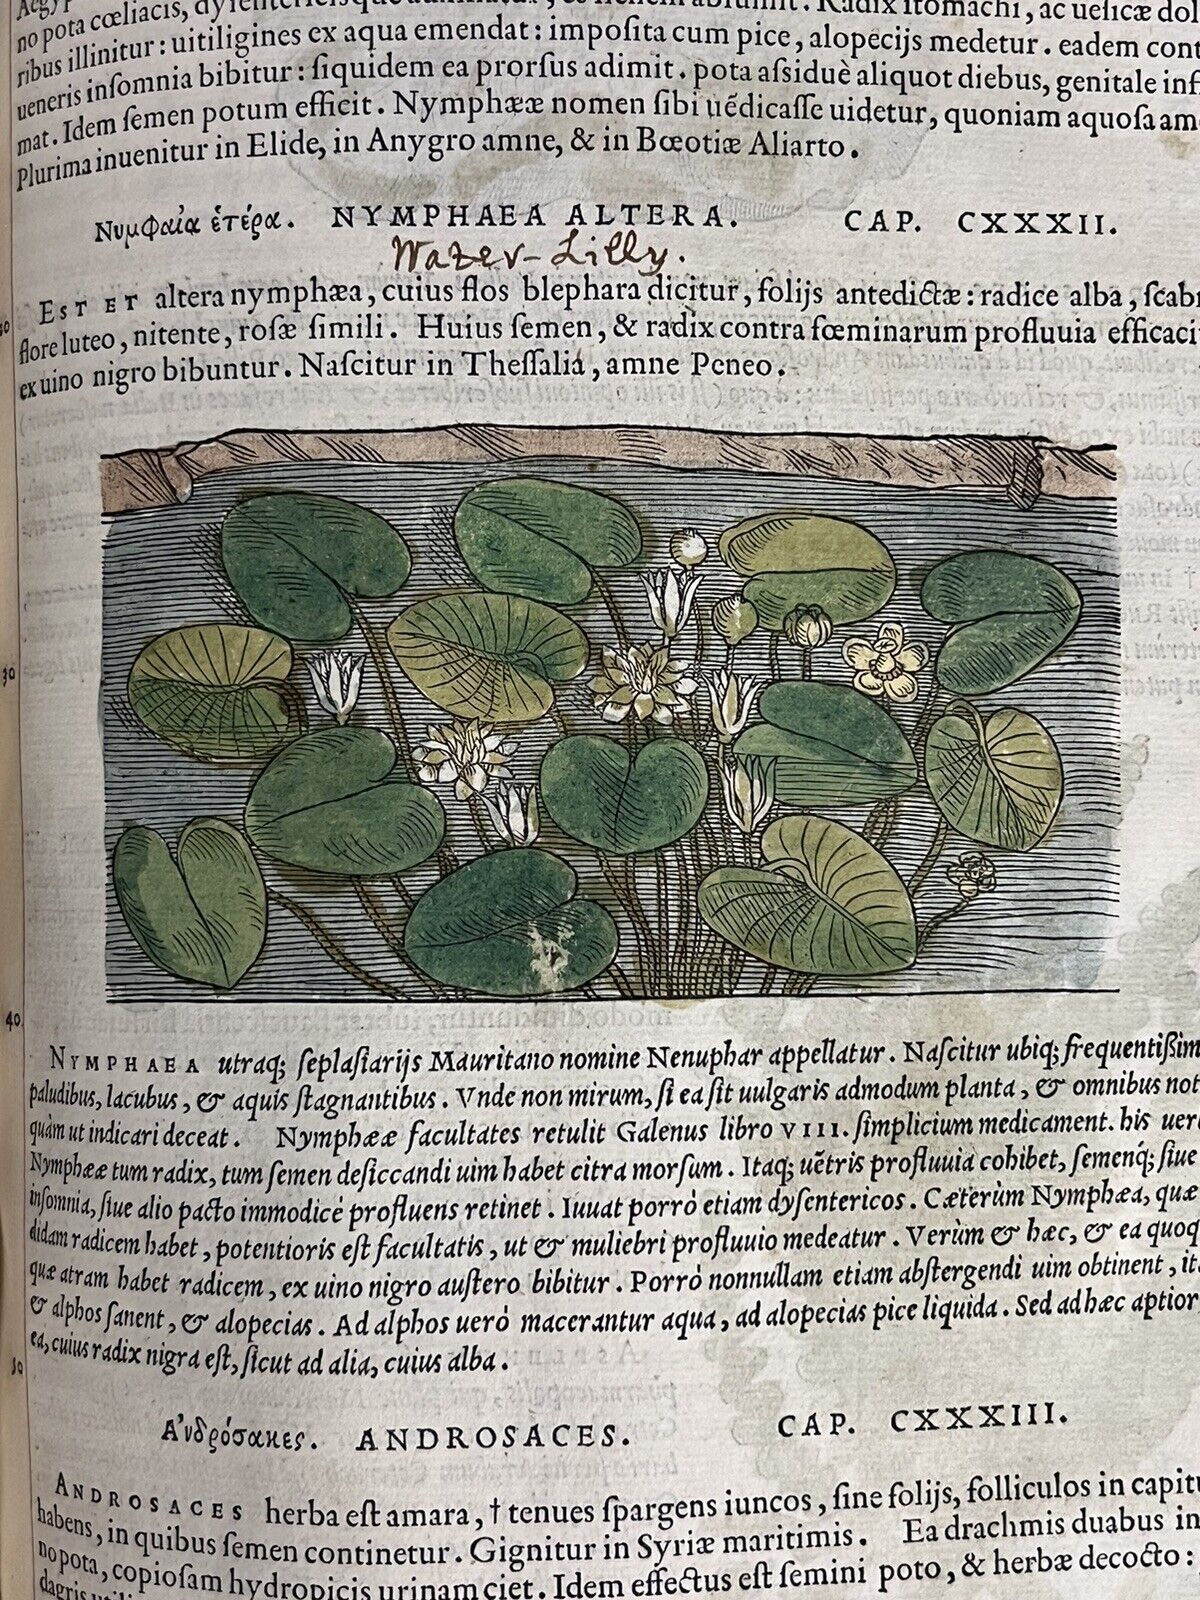 no pota cœliacis,
ribus illinitur: uitiligines ex aqua emendat: impoſita cum pice, alopecijs medetur. eadem cont
ueneris inſomnia bibitur: ſiquidem ea prorſus adimit. pota aſsiduè aliquot diebus, genitale inf
mat. Idem ſemen potum efficit. Nymphææ nomen ſibi uẽdicaſſe uidetur, quoniam aquoſa am
Plurima inuenitur in Elide, in Anygro amne, & in Bœotiæ Aliarto.
Νυμφαία ἑτέρα. NYMPHAEA ALTERA. CAP. CXXXII.
Wazer-Lilly.
EST ET altera nymphæa, cuius flos blephara dicitur, folijs antedictæ: radice alba, ſcabr
flore luteo, nitente, roſæ ſimili. Huius ſemen, & radix contra fœminarum profluuia efficaci
ex uino nigro bibuntur. Naſcitur in Theſſalia, amne Peneo.
30
40
NYMPHAEA utraq; ſeplaſiarijs Mauritano nomine Nenuphar appellatur. Naſcitur ubiq; frequentißim
paludibus, lacubus, & aquis ſtagnantibus. Vnde non mirum, ſi ea ſit uulgaris admodum planta, & omnibus not
quàm ut indicari deceat. Nymphææ facultates retulit Galenus libro VIII. ſimplicium medicament. his uer
Nymphææ tum radix, tum ſemen deſiccandi uim habet citra morſum. Itaq; uẽtris profluuia cohibet, ſemenq́; ſiue
inſomnia, ſiue alio pacto immodicè profluens retinet. Iuuat porrò etiam dyſentericos. Cæterùm Nymphæa, quæ
didam radicem habet, potentioris eſt facultatis, ut & muliebri profluuio medeatur. Verùm & hæc, & ea quoq
quæ atram habet radicem, ex uino nigro auſtero bibitur. Porrò nonnullam etiam abſtergendi uim obtinent, ita
& alphos ſanent, & alopecias. Ad alphos uerò macerantur aqua, ad alopecias pice liquida. Sed ad hæc aptior
ea, cuius radix nigra eſt, ſicut ad alia, cuius alba.
50
Ἀνδρόσακες. ANDROSACES. CAP. CXXXIII.
ANDROSACES herba eſt amara, † tenues ſpargens iuncos, ſine folijs, folliculos in capitu
habens, in quibus ſemen continetur. Gignitur in Syriæ maritimis. Ea drachmis duabus in
no pota, copioſam hydropicis urinam ciet. Idem effectus eſt ſemini poto, & herbæ decocto: